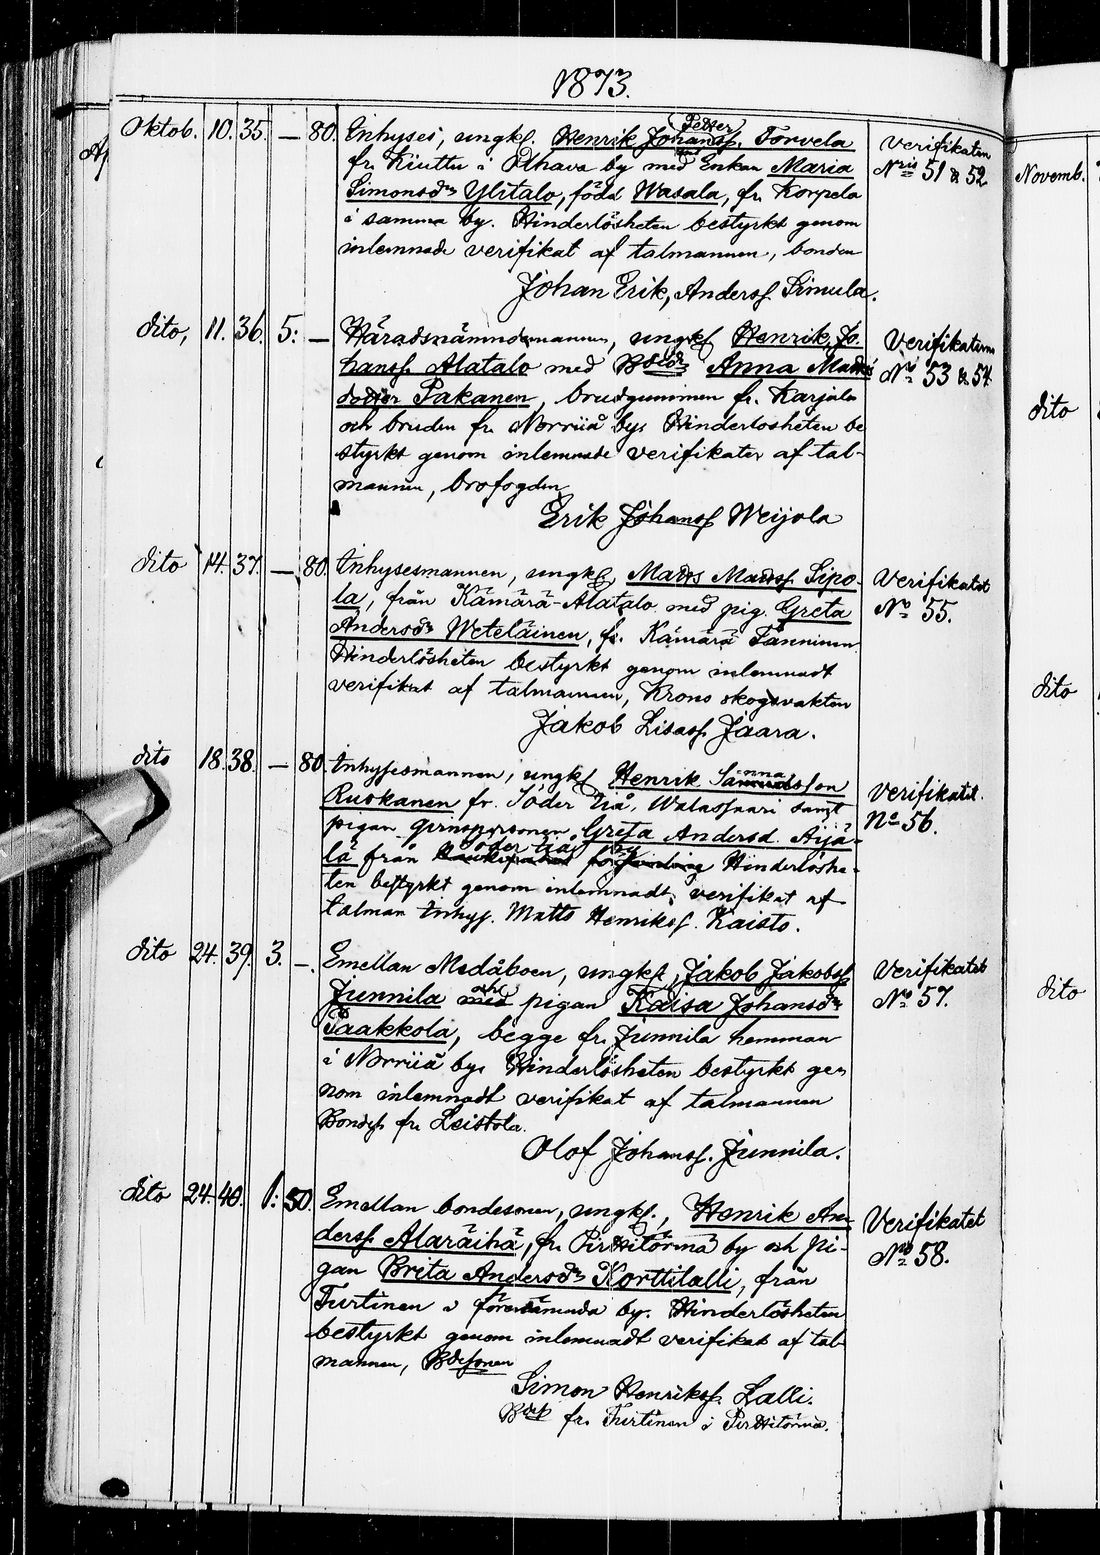 1873.
Oktob. 10. 35. — 80. Inhyses, ungkl. Henrik Petter Johansf. Torvela
fr. Kiuttu i Olhava by med Enkan Maria
Simonsdr Ylitalo, född Wasala, fr. Korpela
i samma by. Hinderlösheten bestyrkt genom
inlemnade verifikat af talmannen, bonden
Johan Erik, Andersf. Simula.
Verifikaten
Nris 51 & 52
dito, 11. 36. 5: — Häradsnämndemannen, ungkf Henrik Jo-
hansf. Alatalo med Bdedr Anna Matts
dotter Pakanen, brudgummen fr. Karjala
och bruden fr. Norriiå by. Hinderlösheten be
styrkt genom inlemnade verifikater af tal-
mannen, brofogden
Erik Johansf Weijola
Verifikaterna
No 53 & 54.
dito 14. 37. — 80. Inhysesmannen, ungkf, Matts Mattsf. Sipo-
la, från Kämärä-Alatalo med pig. Greta
Andersdr Weteläinen, fr. Kämärä Tanninen
Hinderlösheten bestyrkt genom inlemnadt
verifikat af talmannen, Krono skogsvakten
Jakob Lisasf. Jaara.
Verifikatet
No 55.
dito 18. 38. — 80. Inhysesmannen, ungkf Henrik Sannasson
Ruokanen fr. Söder Iiå, Walassaari samt
pigan Greta Andersd. Äijä-
lä från Söder Iiå by Hinderlöshe-
ten bestyrkt genom inlemnadt verifikat af
talman Inhys. Matts Henriksf. Kaisto.
Verifikatet.
No 56.
dito 24. 39. 3. —. Emellan Medåboen, ungkf, Jakob Jakobsf
Junnila och pigan Kaisa Johansdr
Paakkola, begge fr. Junnila hemman
i Norriiå by. Hinderlösheten bestyrkt ge-
nom inlemnadt verifikat af talmannen
Bondes. fr. Leistola.
Olof Johansf. Junnila.
Verifikatet
No 57.
dito 24. 40. 1: 50. Emellan bondesonen, ungkf., Henrik An-
dersf. Alaräihä, fr. Pirttitörmä by och pi-
gan Brita Andersdr Korttilalli, från
Turtinen i förenämnda by. Hinderlösheten
bestyrkt genom inlemnadt verifikat af tal-
mannen, Bdesonen
Simon Henriksf. Lalli.
fr. Turtinen i Pirttitörmä.
Verifikatet
No 58.
Novemb.
dito
dito
dito